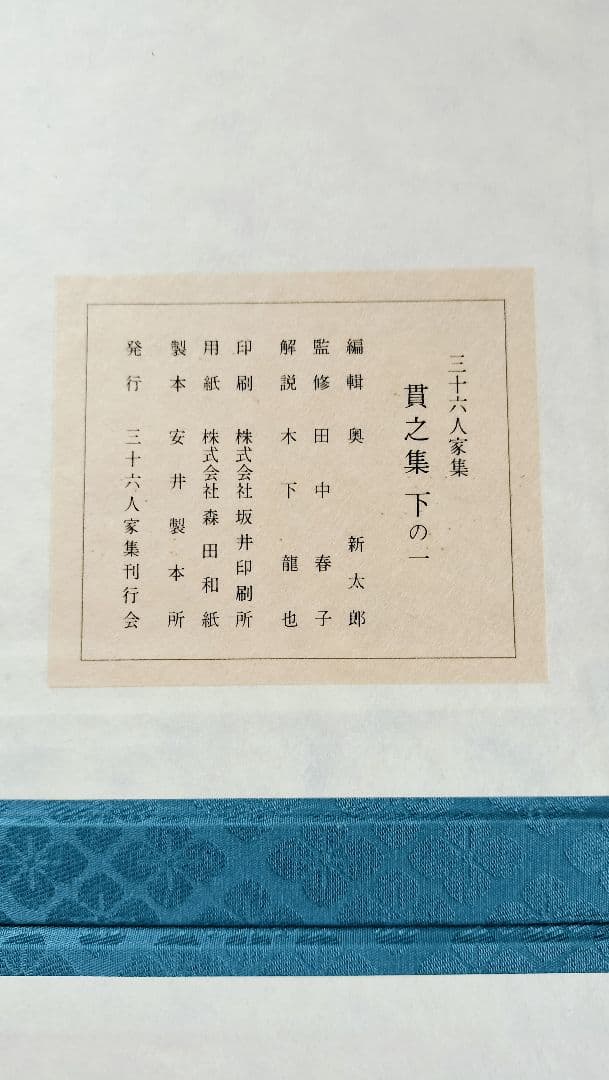 三十六人家集
貫之集 下の一
編輯 奥 新太郎
監修 田中春子
解説 木下龍也
印刷 株式会社 坂井印刷所
用紙 株式会社 森田和紙
製本 安井製本所
発行 三十六人家集刊行会